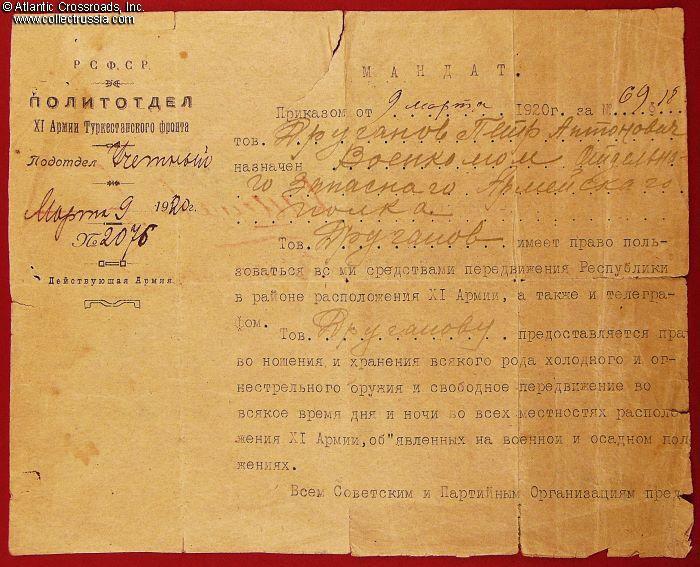 © Atlantic Crossroads, Inc.
www.collectrussia.com
Р.С.Ф.С.Р.
ПОЛИТОТДЕЛ
XI Армии Туркестанского фронта
Подотдел Учетный
Марта 9 1920 г.
№ 2076
Действующая Армия.
МАНДАТ.
Приказом от 9 марта 1920г. за № 69
тов. Друганов Петр Антонович
назначен Военкомом Отдельно-
го Запасного Армейского
полка
Тов. Друганов имеет право поль-
зоваться вс ми средствами передвижения Республики
в районе расположения XI Армии, а также и телегра-
фом.
Тов. Друганову предоставляется пра
во ношения и хранения всякого рода холодного и ог-
нестрельного оружия и свободное передвижение во
всякое время дня и ночи во всех местностях располо
жения XI Армии, об"явленных на военном и осадном пол
жениях.
Всем Советским и Партийным Организациям пред